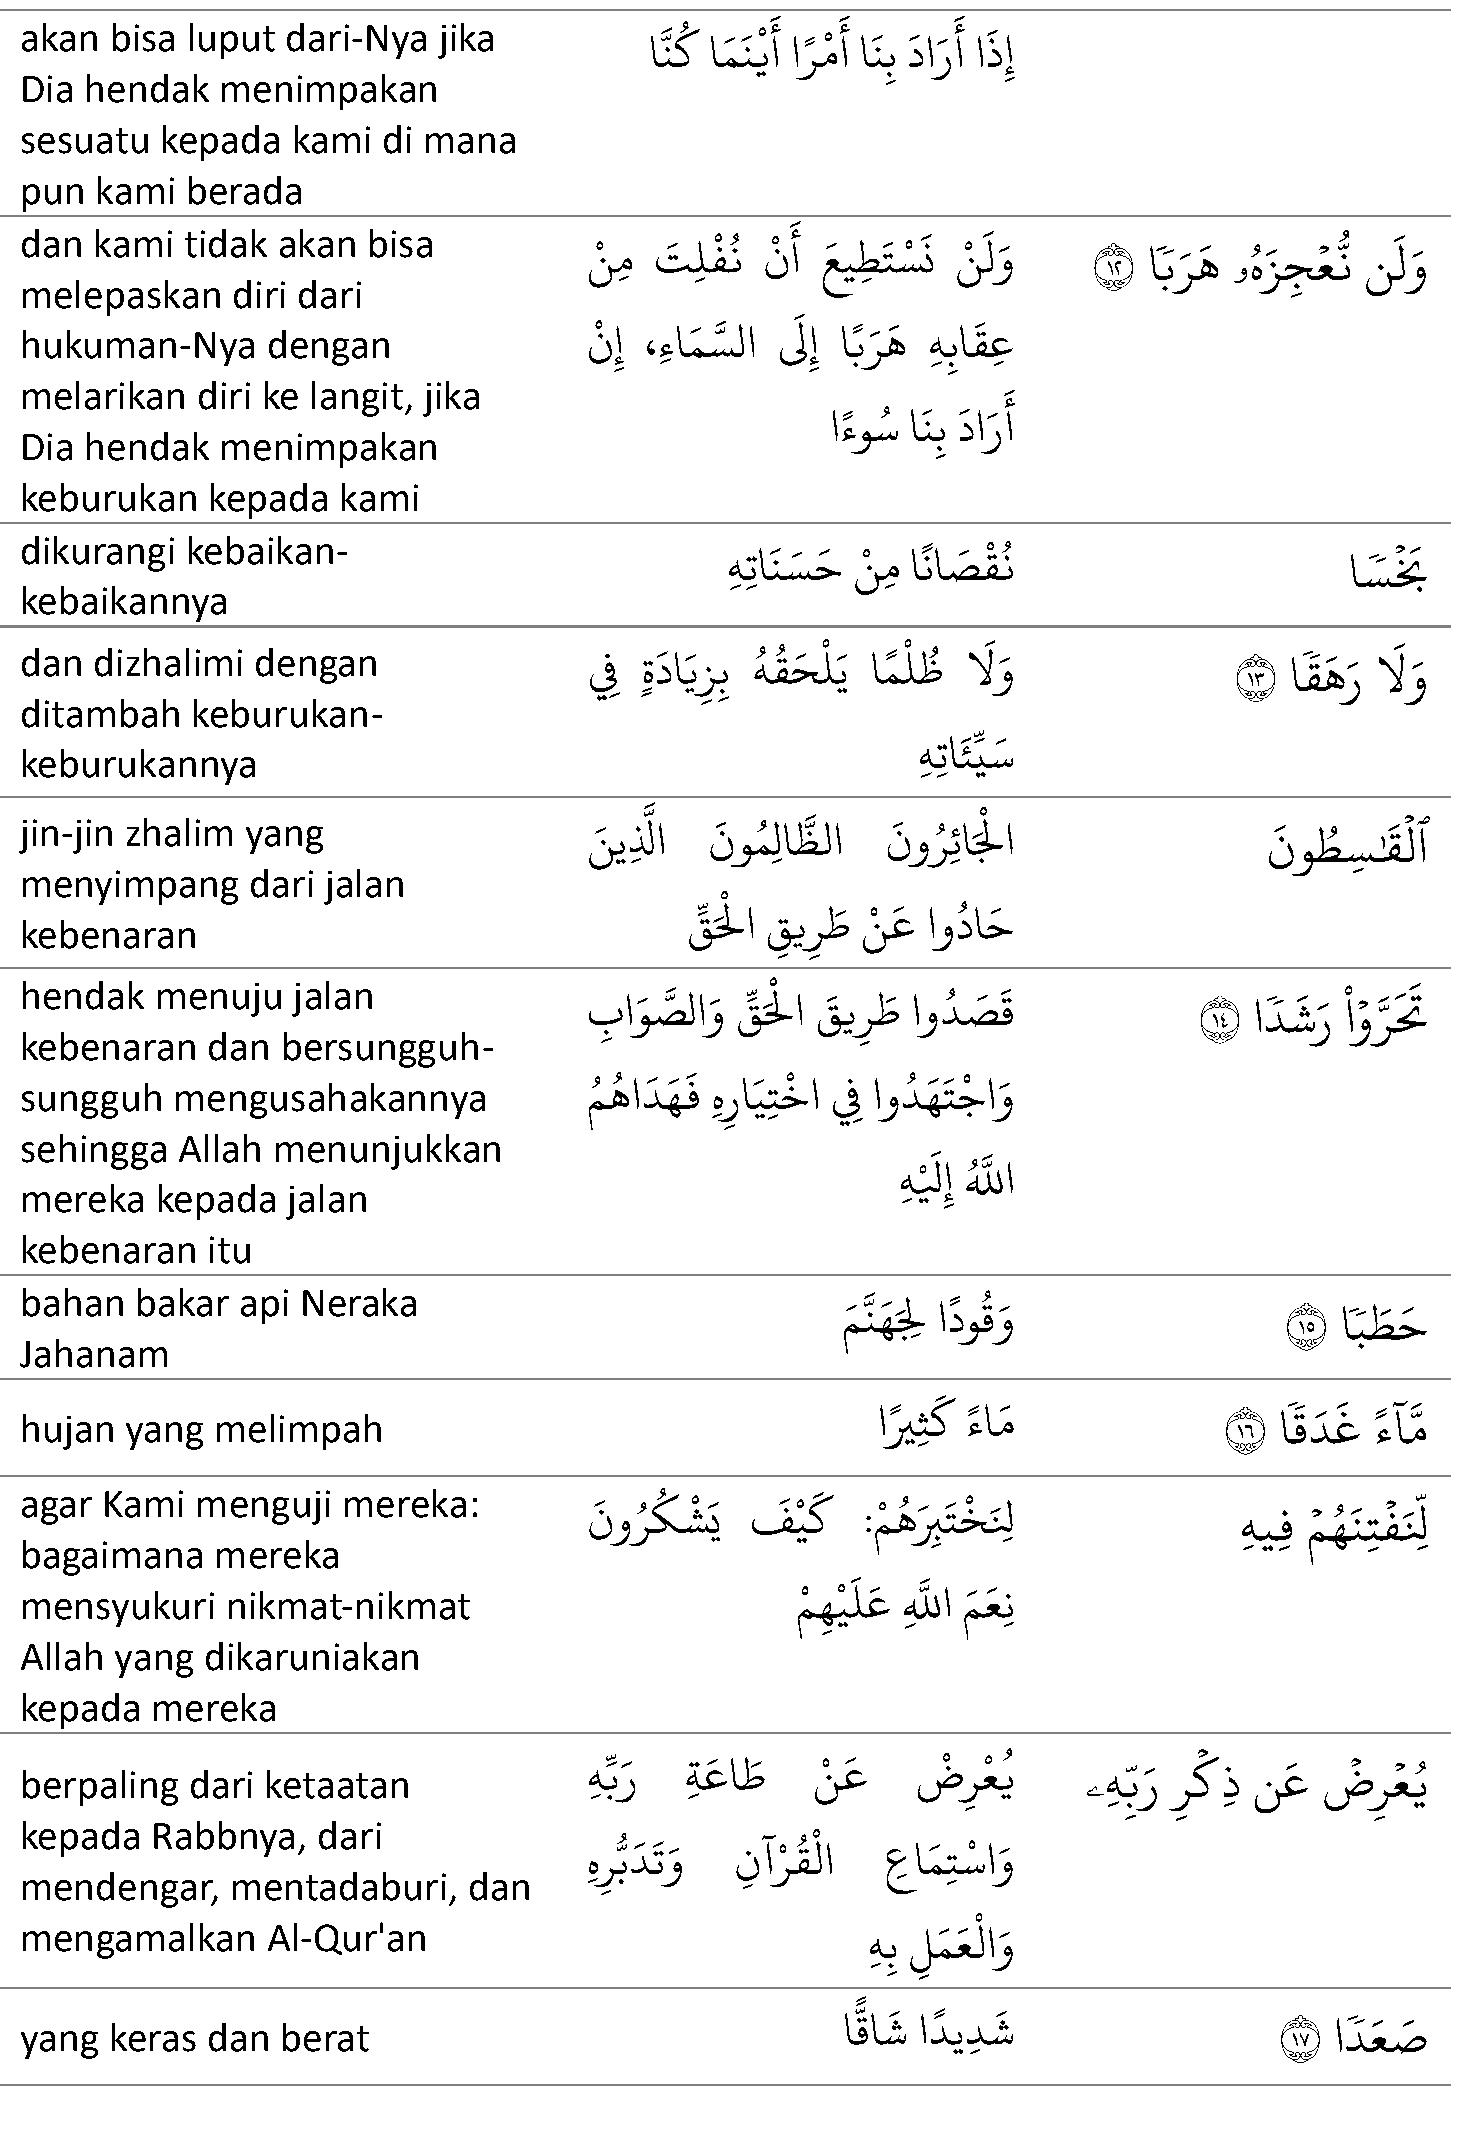 akan bisa luput dari-Nya jika
Dia hendak menimpakan
sesuatu kepada kami di mana
pun kami berada
إِذَا أَرَادَ بِنَا أَمْرًا أَيْنَمَا كُنَّا
dan kami tidak akan bisa
melepaskan diri dari
hukuman-Nya dengan
melarikan diri ke langit, jika
Dia hendak menimpakan
keburukan kepada kami
وَلَنْ نَسْتَطِيعَ أَنْ نُفْلِتَ مِنْ
عِقَابِهِ هَرَبًا إِلَى السَّمَاءِ، إِنْ
أَرَادَ بِنَا سُوءًا
وَلَن نُّعۡجِزَهُۥ هَرَبٗا ١٢
dikurangi kebaikan-
kebaikannya
نُقْصَانًا مِنْ حَسَنَاتِهِ
بَخۡسٗا
dan dizhalimi dengan
ditambah keburukan-
keburukannya
وَلَا ظُلْمًا يَلْحَقُهُ بِزِيَادَةٍ فِي
سَيِّئَاتِهِ
وَلَا رَهَقٗا ١٣
jin-jin zhalim yang
menyimpang dari jalan
kebenaran
الْجَائِرُونَ الظَّالِمُونَ الَّذِينَ
حَادُوا عَنْ طَرِيقِ الْحَقِّ
ٱلۡقَٰسِطُونَ
hendak menuju jalan
kebenaran dan bersungguh-
sungguh mengusahakannya
sehingga Allah menunjukkan
mereka kepada jalan
kebenaran itu
قَصَدُوا طَرِيقَ الْحَقِّ وَالصَّوَابِ
وَاجْتَهَدُوا فِي اخْتِيَارِهِ فَهَدَاهُمُ
اللَّهُ إِلَيْهِ
تَحَرَّوۡاْ رَشَدٗا ١٤
bahan bakar api Neraka
Jahanam
وَقُودًا لِجَهَنَّمَ
حَطَبٗا ١٥
hujan yang melimpah
مَاءً كَثِيرًا
مَّآءً غَدَقٗا ١٦
agar Kami menguji mereka:
bagaimana mereka
mensyukuri nikmat-nikmat
Allah yang dikaruniakan
kepada mereka
لِنَخْتَبِرَهُمْ: كَيْفَ يَشْكُرُونَ
نِعَمَ اللَّهِ عَلَيْهِمْ
لِّنَفۡتِنَهُمۡ فِيهِ
berpaling dari ketaatan
kepada Rabbnya, dari
mendengar, mentadaburi, dan
mengamalkan Al-Qur'an
يُعْرِضْ عَنْ طَاعَةِ رَبِّهِ
وَاسْتِمَاعِ الْقُرْآنِ وَتَدَبُّرِهِ
وَالْعَمَلِ بِهِ
يُعۡرِضۡ عَن ذِكۡرِ رَبِّهِۦ
yang keras dan berat
شَدِيدًا شَاقًّا
صَعَدٗا ١٧